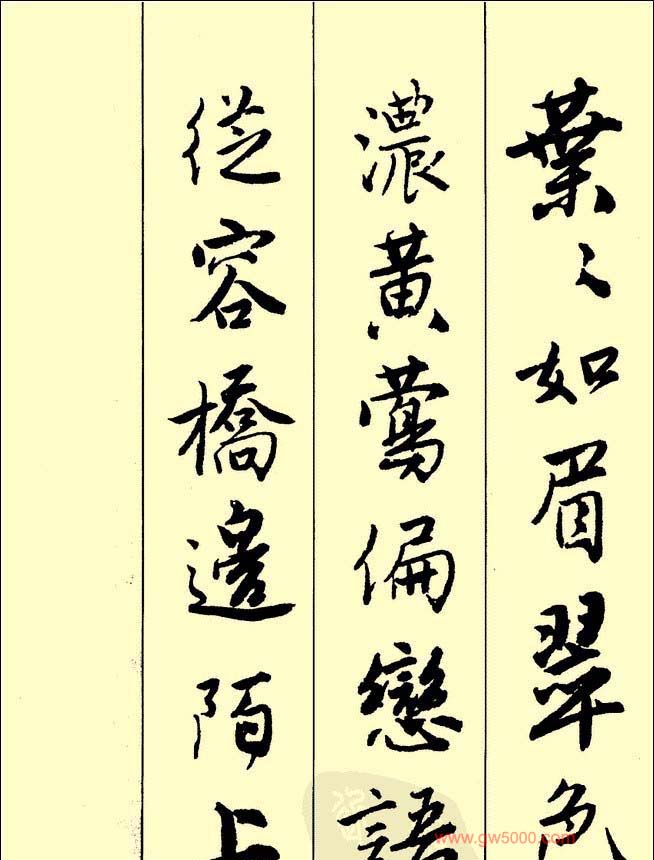 葉々如眉翠色
濃黄鶯偏戀語
從容橋邊陌上
www.gw5000.com